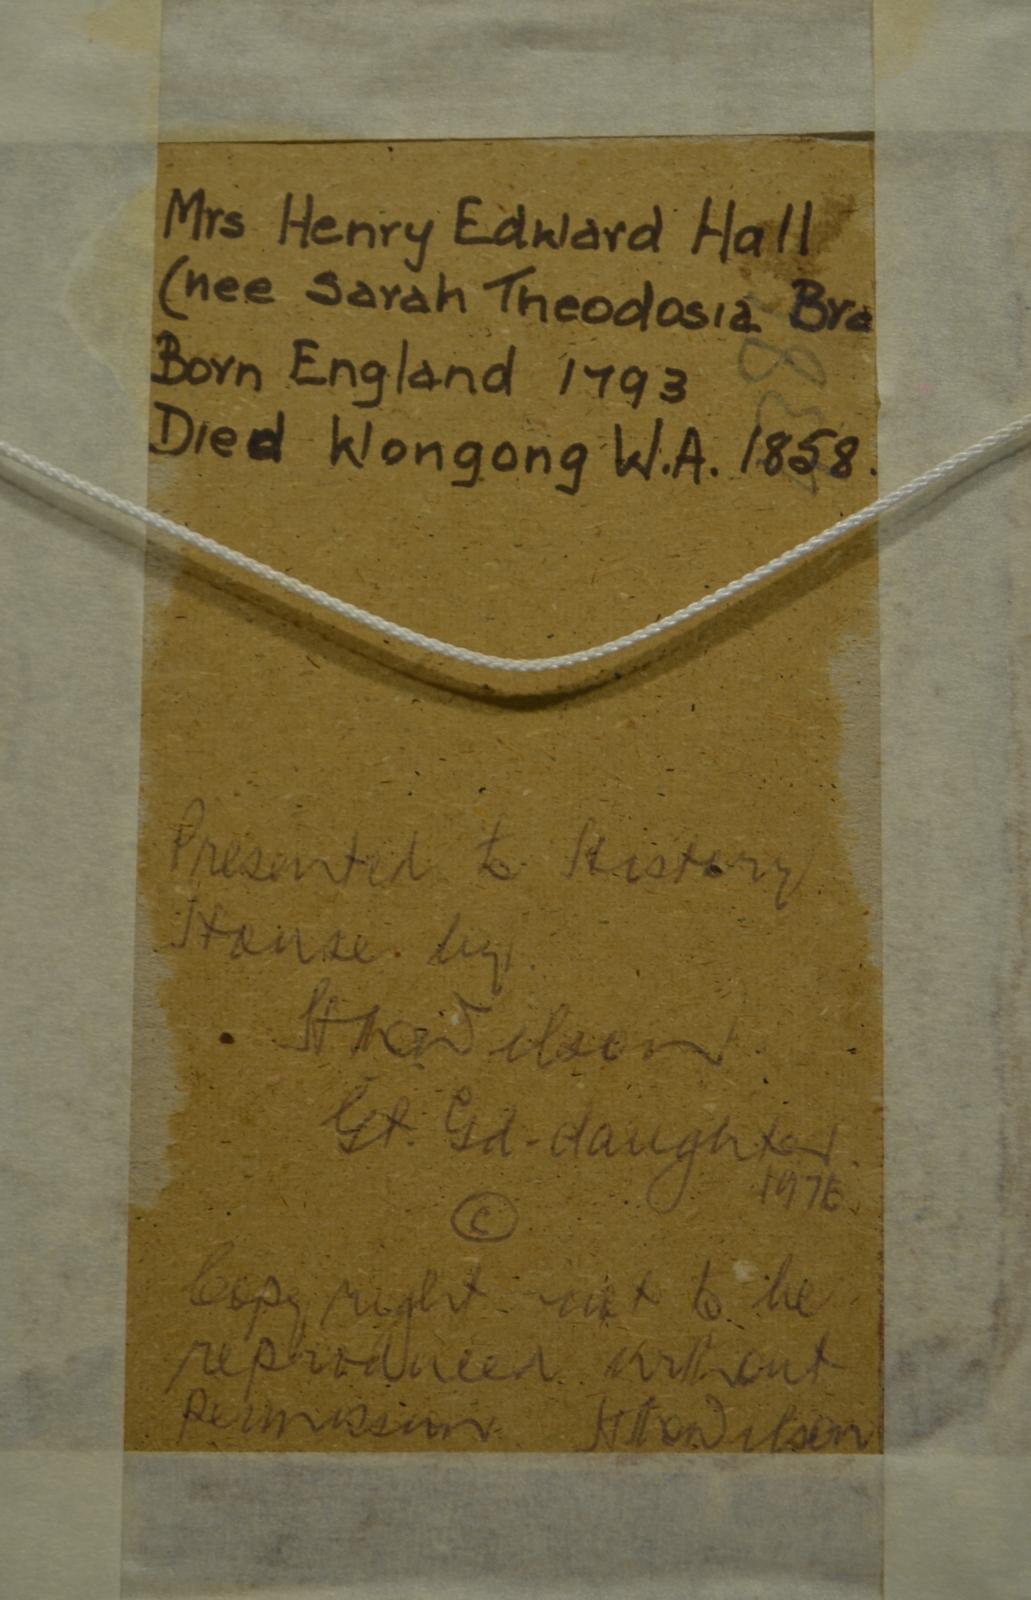 Mrs Henry Edward Hall
(nee Sarah Theodosia Bra
Born England 1793
Died Wongong W.A. 1858.
Presented to History
House by
Wilson
Gt. Gd-daughter
1976.
©
Copyright not to be
reproduced without
permission Wilson